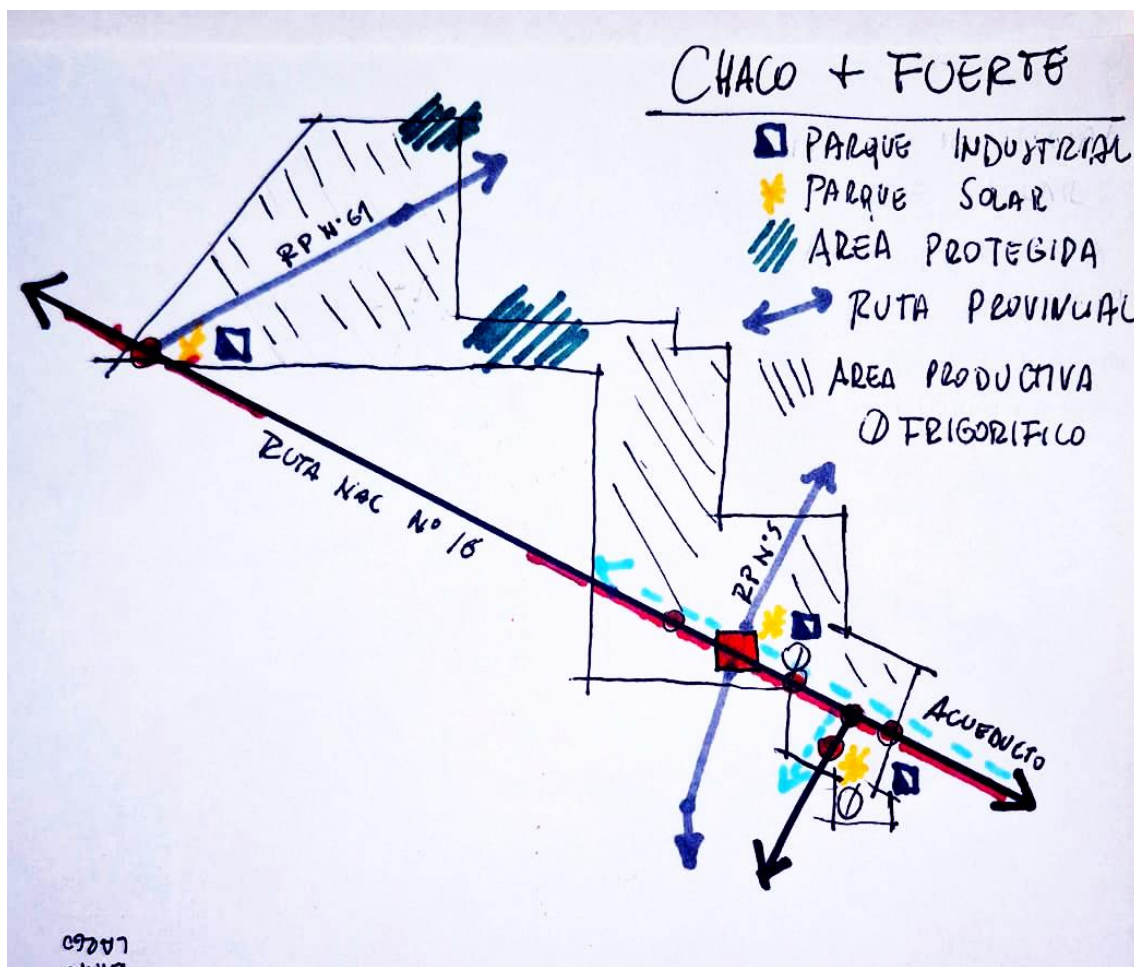 CHACO + FUERTE
PARQUE INDUSTRIAL
PARQUE SOLAR
AREA PROTEGIDA
RUTA PROVINCIAL
AREA PRODUCTIVA
FRIGORIFICO
RP Nº61
RUTA NAC Nº 16
RP Nº5
ACUEDUCTO
LARGO